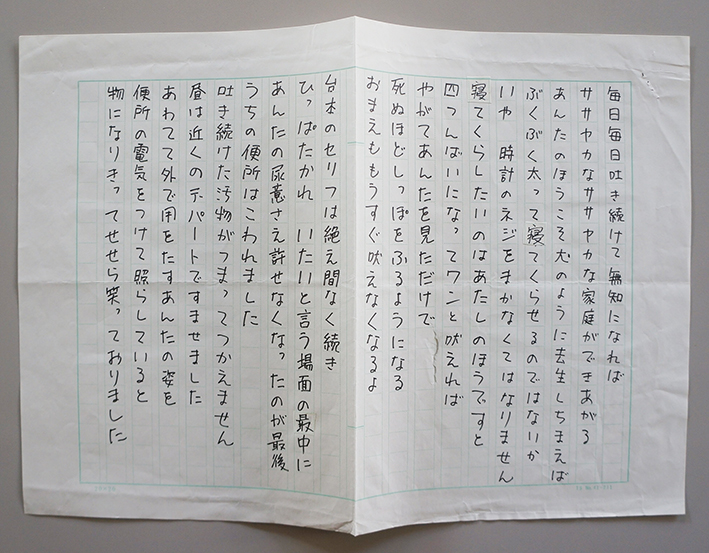 毎日毎日吐き続けて無知になれば
ササヤカなササヤカな家庭ができあがる
あんたのほうこそ犬のように去生しちまえば
ぶくぶく太って寝てくらせるのではないか
いや　時計のネジをまかなくてはなりません
寝てくらしたいのはあたしのほうですと
四つんばいになってワンと吠えれば
やがてあんたを見ただけで
死ぬほどしっぽをふるようになる
おまえももうすぐ吠えなくなるよ
台本のセリフは絶え間なく続き
ひっぱたかれ　いたいと言う場面の最中に
あんたの尿意さえ許せなくなったのが最後
うちの便所はこわれました
吐き続けた汚物がつまってつかえません
昼は近くのデパートですませました
あわてて外で用をたすあんたの姿を
便所の電気をつけて照らしていると
物になりきってせせら笑っておりました